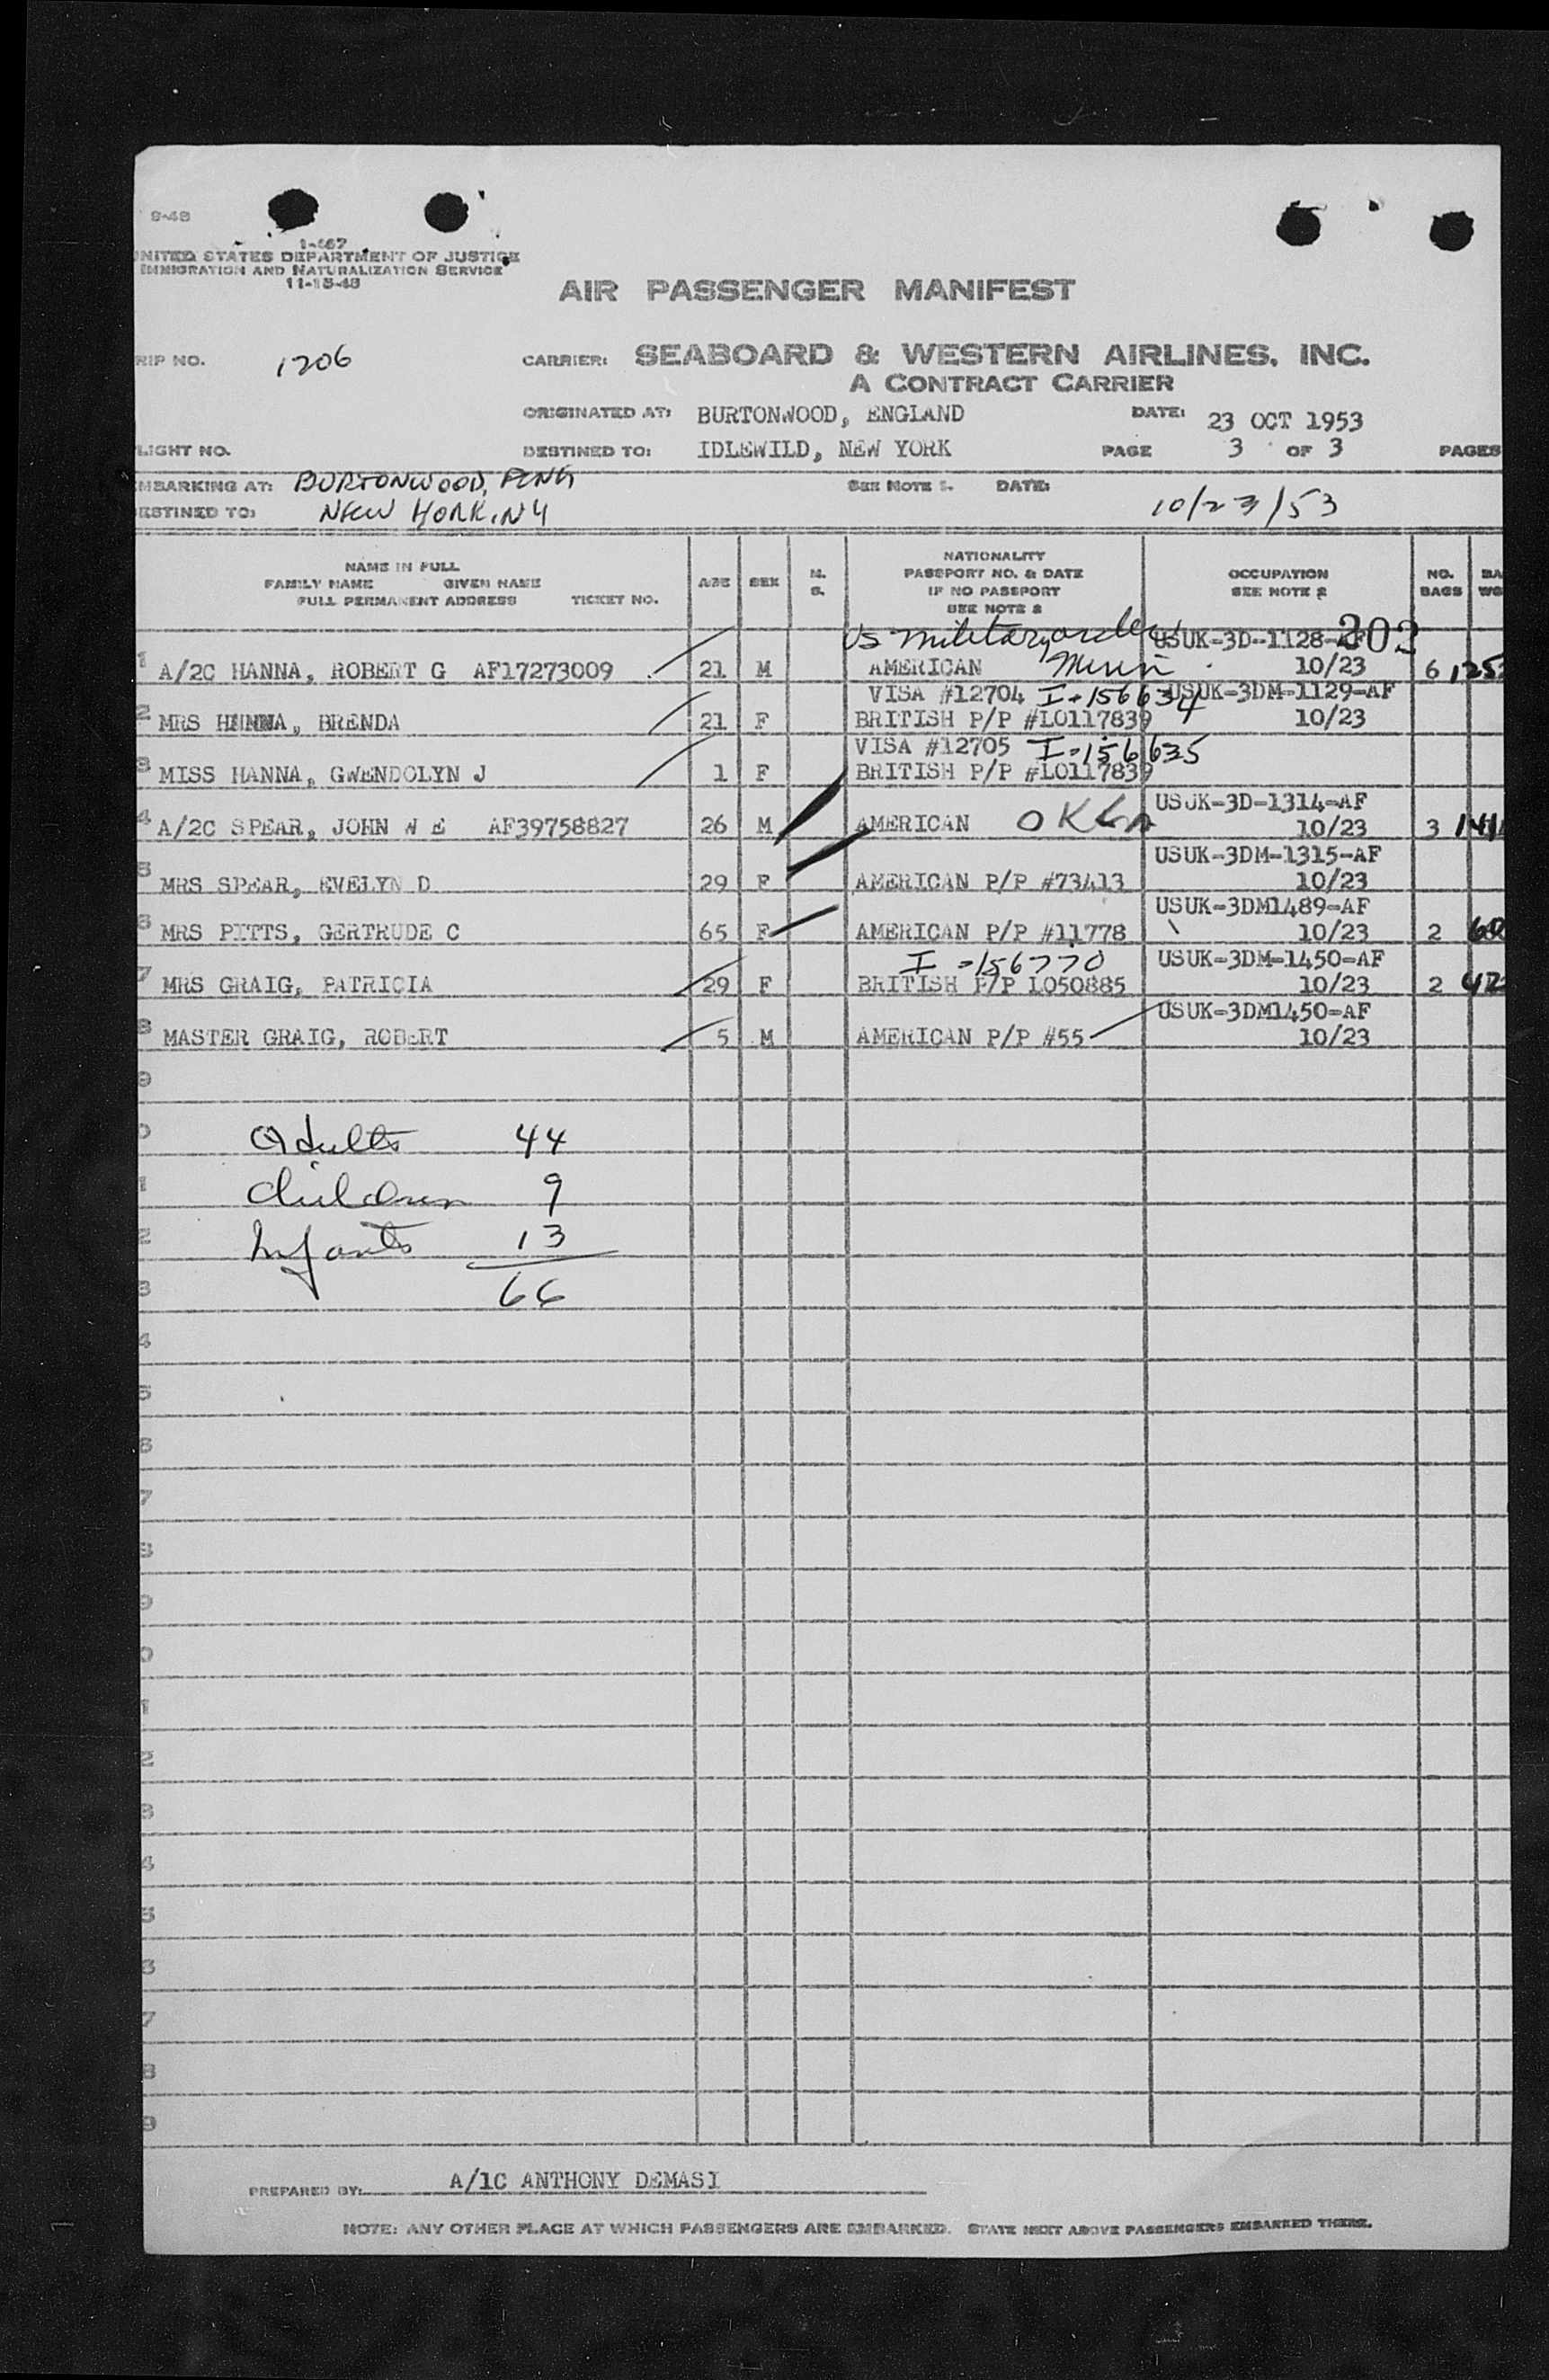 9-48
1-467
UNITED STATES DEPARTMENT OF JUSTICE
IMMIGRATION AND NATURALIZATION SERVICE
11-15-48
AIR PASSENGER MANIFEST
RIP NO. 1206 CARRIER: SEABOARD & WESTERN AIRLINES, INC.
A CONTRACT CARRIER
ORIGINATED AT: BURTONWOOD, ENGLAND DATE: 23 OCT 1953
LIGHT NO. DESTINED TO: IDLEWILD, NEW YORK PAGE 3 OF 3 PAGES
MBARKING AT: BURTONWOOD, ENG SEE NOTE 1. DATE: 10/23/53
ESTINED TO: NEW YORK, NY
NAME IN FULL
FAMILY NAME GIVEN NAME
FULL PERMANENT ADDRESS TICKET NO.
AGE SEX M. S.
NATIONALITY
PASSPORT NO. & DATE
IF NO PASSPORT
SEE NOTE 2
OCCUPATION
SEE NOTE 2
NO. BAGS
BA WG
US military orders USUK-3D-1128-AF 202
1 A/2C HANNA, ROBERT G AF17273009 21 M AMERICAN 10/23 6 125
VISA #12704 I-156634 USUK-3DM-1129-AF
2 MRS HANNA, BRENDA 21 F BRITISH P/P #L0117839 10/23
VISA #12705 I-156635
3 MISS HANNA, GWENDOLYN J 1 F BRITISH P/P #L0117839
USUK-3D-1314-AF
4 A/2C SPEAR, JOHN W E AF39758827 26 M AMERICAN OK 10/23 3 141
USUK-3DM-1315-AF
5 MRS SPEAR, EVELYN D 29 F AMERICAN P/P #73413 10/23
USUK-3DM1489-AF
6 MRS PITTS, GERTRUDE C 65 F AMERICAN P/P #11778 10/23 2 60
I-156770 USUK-3DM-1450-AF
7 MRS GRAIG, PATRICIA 29 F BRITISH P/P L050885 10/23 2 42
USUK-3DM1450-AF
8 MASTER GRAIG, ROBERT 5 M AMERICAN P/P #55 10/23
9
0 Adults 44
1 Children 9
2 Infants 13
3 66
4
5
6
7
8
9
0
1
2
3
4
5
6
7
8
9
PREPARED BY: A/1C ANTHONY DEMASI
NOTE: ANY OTHER PLACE AT WHICH PASSENGERS ARE EMBARKED. STATE NEXT ABOVE PASSENGERS EMBARKED THERE.